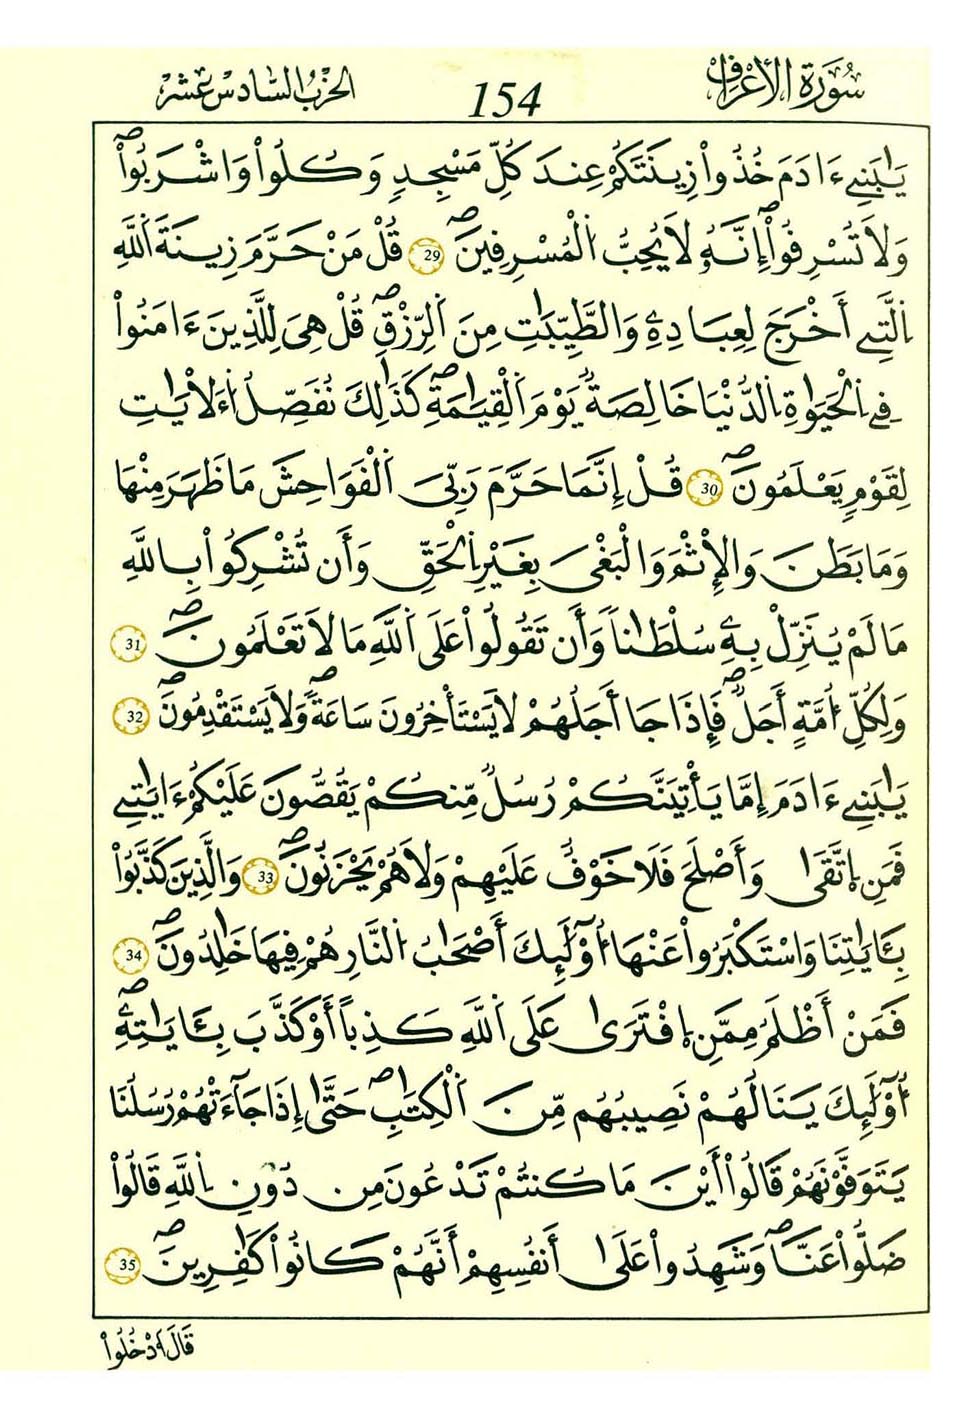 سُورَةُ الأَعْرَافِ 154 الحِزْبُ السَّادِسَ عَشَرَ
يَٰبَنِےٓ ءَادَمَ خُذُواْ زِينَتَكُمْ عِندَ كُلِّ مَسْجِدٖ وَكُلُواْ وَاشْرَبُواْ
وَلَا تُسْرِفُوٓاْ إِنَّهُۥ لَا يُحِبُّ اُلْمُسْرِفِينَ 29 قُلْ مَنْ حَرَّمَ زِينَةَ اَللَّهِ
اِلتِےٓ أَخْرَجَ لِعِبَادِهِۦ وَالطَّيِّبَٰتِ مِنَ اَلرِّزْقِ قُلْ هِىَ لِلَّذِينَ ءَامَنُواْ
فِے اِلْحَيَوٰةِ اِلدُّنْيَا خَالِصَةٌ يَوْمَ اَلْقِيَٰمَةِ كَذَٰلِكَ نُفَصِّلُ اُءَلَايَٰتِ
لِقَوْمٖ يَعْلَمُونَ 30 قُلْ إِنَّمَا حَرَّمَ رَبِّىَ اَلْفَوَٰحِشَ مَا ظَهَرَ مِنْهَا
وَمَا بَطَنَ وَالْإِثْمَ وَالْبَغْىَ بِغَيْرِ اِلْحَقِّ وَأَن تُشْرِكُواْ بِاللَّهِ
مَا لَمْ يُنَزِّلْ بِهِۦ سُلْطَٰناً وَأَن تَقُولُواْ عَلَى اَللَّهِ مَا لَا تَعْلَمُونَ 31
وَلِكُلِّ أُمَّةٍ أَجَلٌ فَإِذَا جَا أَجَلُهُمْ لَا يَسْتَأْخِرُونَ سَاعَةٗ وَلَا يَسْتَقْدِمُونَ 32
يَٰبَنِےٓ ءَادَمَ إِمَّا يَأْتِيَنَّكُمْ رُسُلٌ مِّنكُمْ يَقُصُّونَ عَلَيْكُمُۥٓ ءَايَٰتِے
فَمَنِ اِتَّقَىٰ وَأَصْلَحَ فَلَا خَوْفٌ عَلَيْهِمْ وَلَا هُمْ يَحْزَنُونَ 33 وَالَّذِينَ كَذَّبُواْ
بِـَٔايَٰتِنَا وَاسْتَكْبَرُواْ عَنْهَا أُوْلَٰٓئِكَ أَصْحَٰبُ اُلنَّارِ هُمْ فِيهَا خَٰلِدُونَ 34
فَمَنْ أَظْلَمُ مِمَّنِ اِفْتَرَىٰ عَلَى اَللَّهِ كَذِباً أَوْ كَذَّبَ بِـَٔايَٰتِهِۦٓ
أُوْلَٰٓئِكَ يَنَالُهُمْ نَصِيبُهُم مِّنَ اَلْكِتَٰبِ حَتَّىٰ إِذَا جَآءَتْهُمْ رُسُلُنَا
يَتَوَفَّوْنَهُمْ قَالُوٓاْ أَيْنَ مَا كُنتُمْ تَدْعُونَ مِن دُونِ اِللَّهِ قَالُواْ
ضَلُّواْ عَنَّا وَشَهِدُواْ عَلَىٰٓ أَنفُسِهِمْ أَنَّهُمْ كَانُواْ كَٰفِرِينَ 35
قَالَ اَدْخُلُواْ